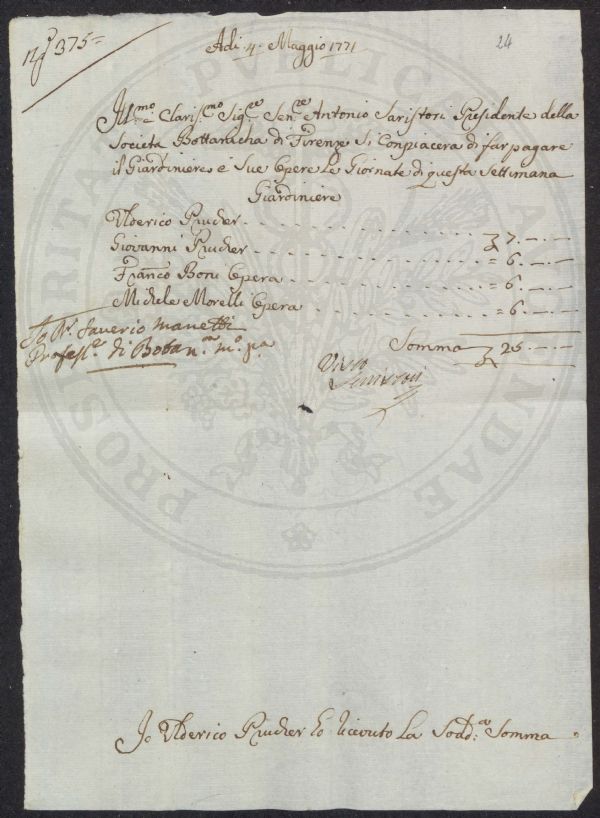 N.º 375=
24
Adi .4. Maggio 1771
Ill.mo e Claris.mo Sig.re Sen.re Antonio Saristori Presidente della
Società Bottanicha di Firenze Si Conpiacera di far pagare
il Giardiniere e Sue Opere Le Giornate di questa Settimana
Giardiniere
Ulderico Prucher - - - - - - - - 7. -.-
Giovanni Prucher - - - - - - - - = 6. -.-
Franco Boni Opera - - - - - - - = 6. -.-
Michele Morelli Opera - - - - - - = 6. -.-
Somma 25. -.-
Io D.r Saverio Manetti
Profess.e di Botan.ca m.o p.a
Visto
Jo Ulderico Prucher ho riceuto La Sodd.a Somma
PROSPERITATI PVBLICAE AVGENDAE